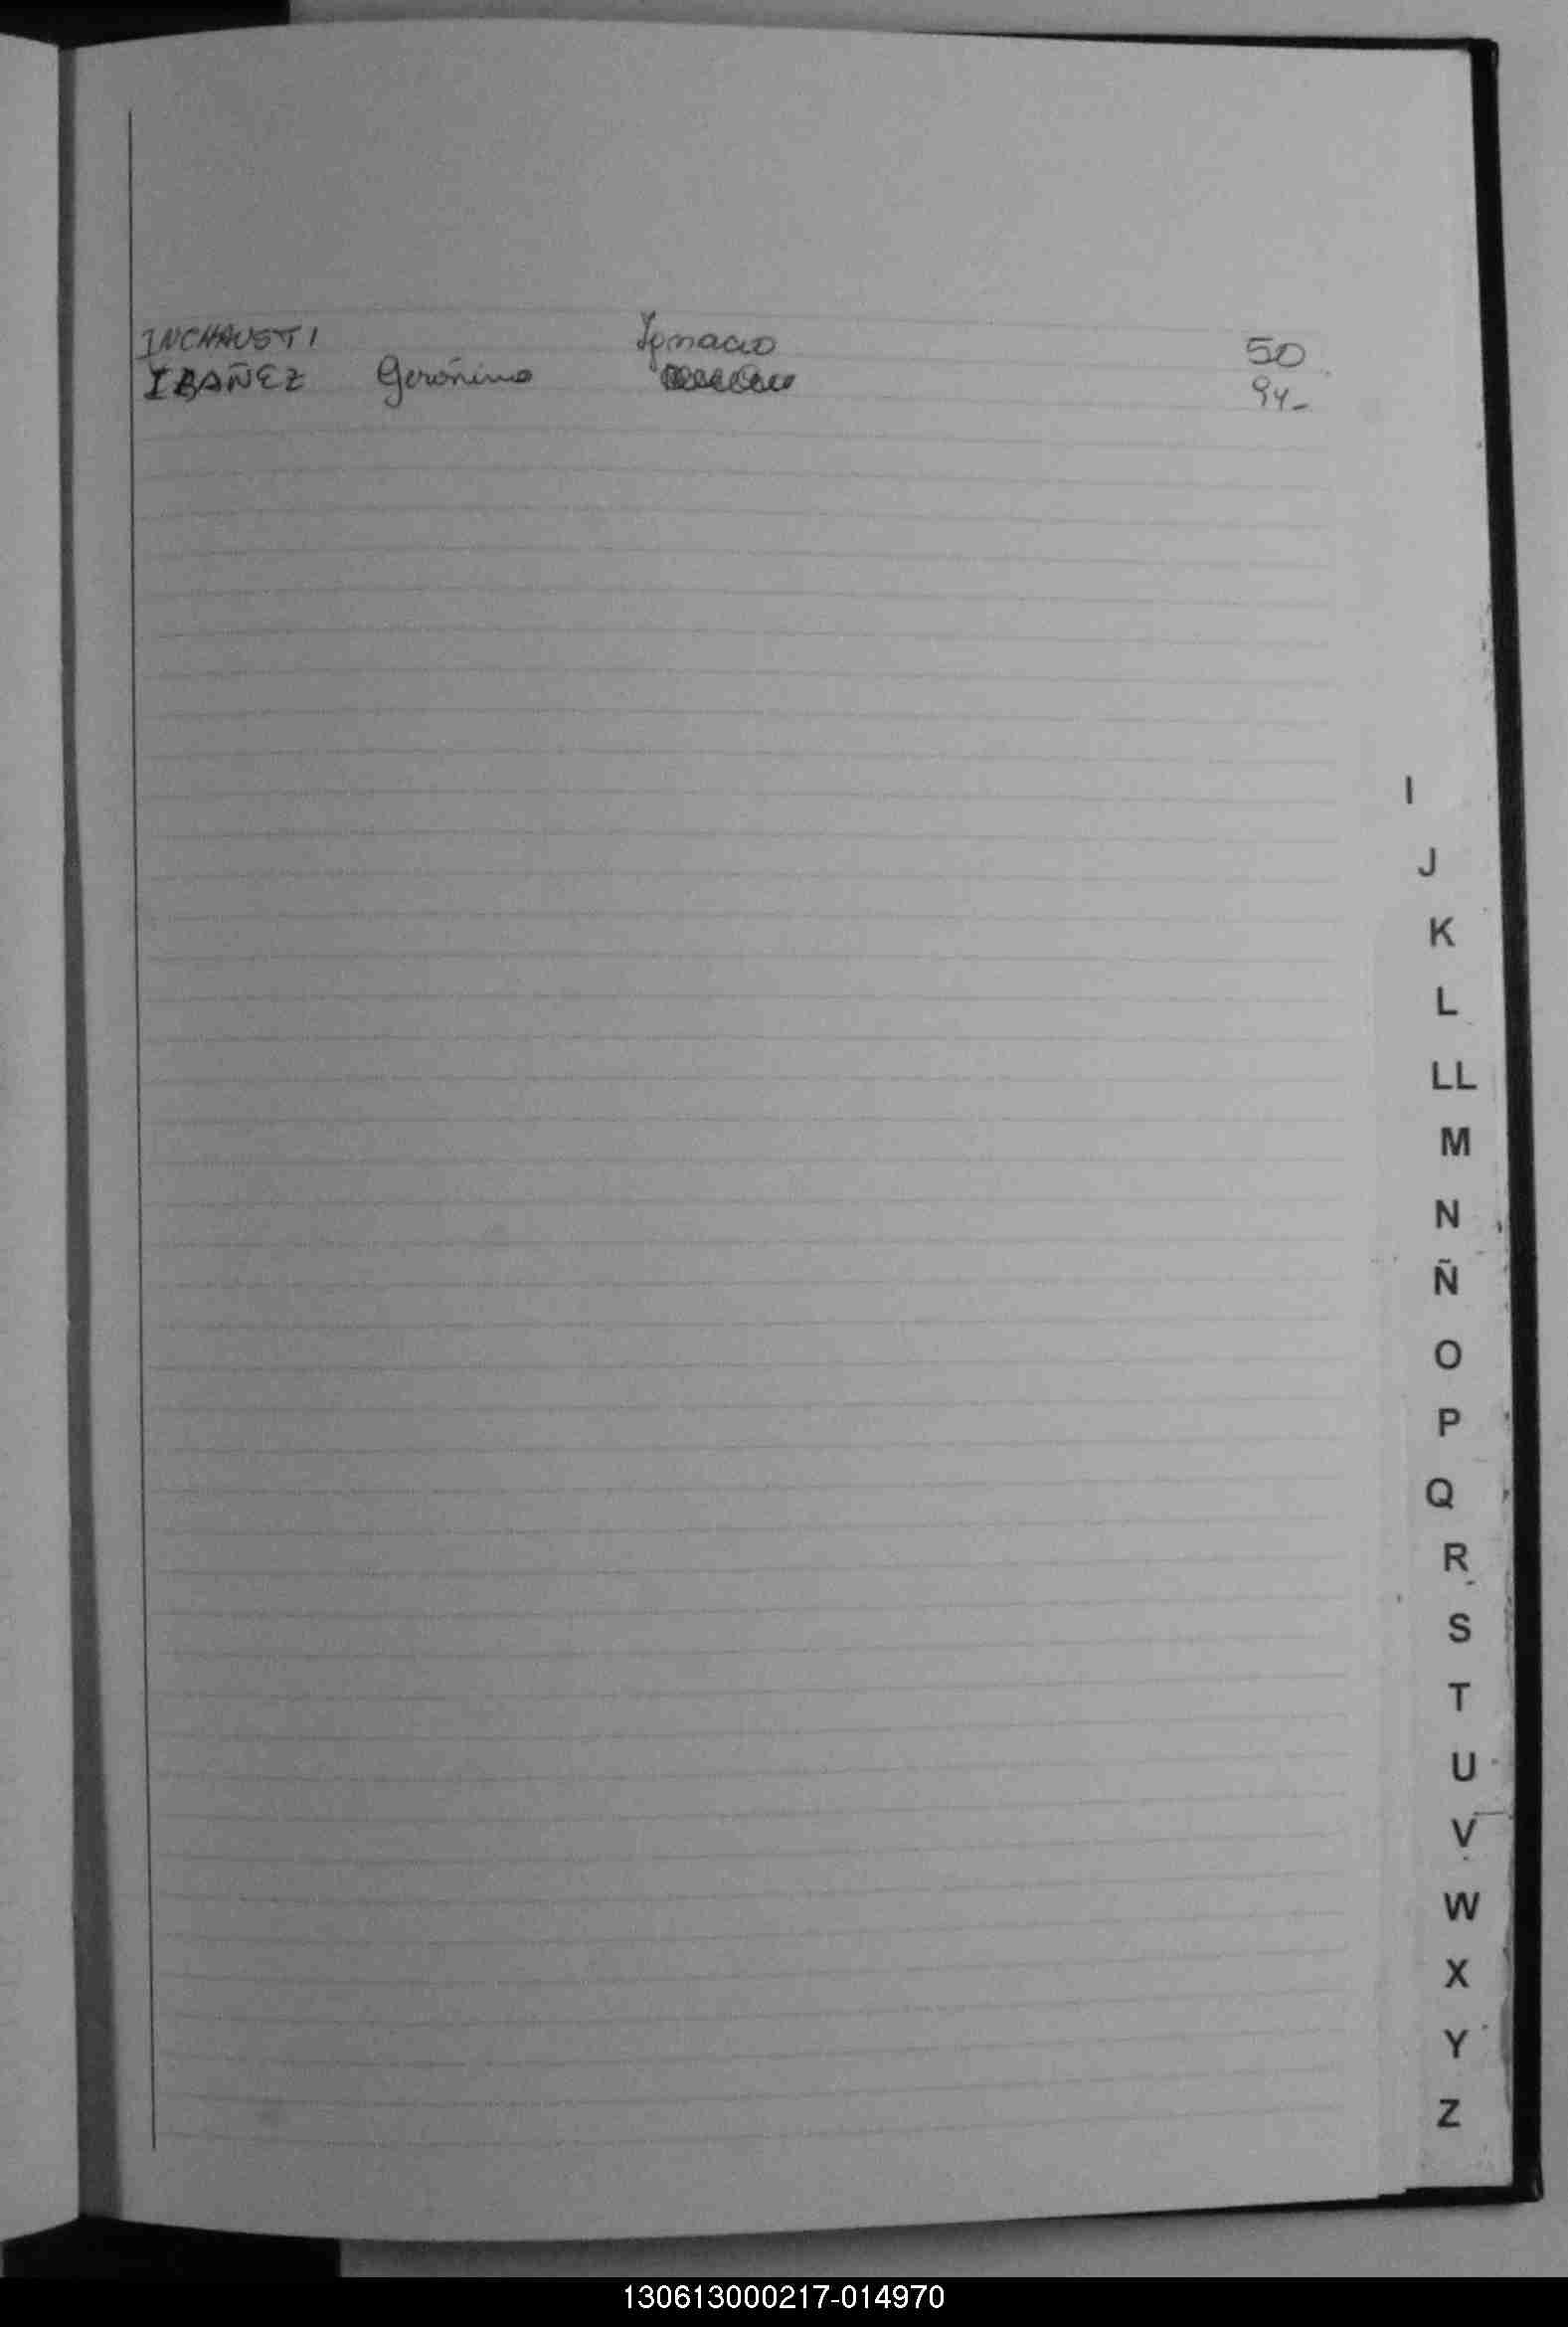 INCHAUSTI Ignacio 50
IBAÑEZ Gerónimo 94-
I
J
K
L
LL
M
N
Ñ
O
P
Q
R
S
T
U
V
W
X
Y
Z
130613000217-014970